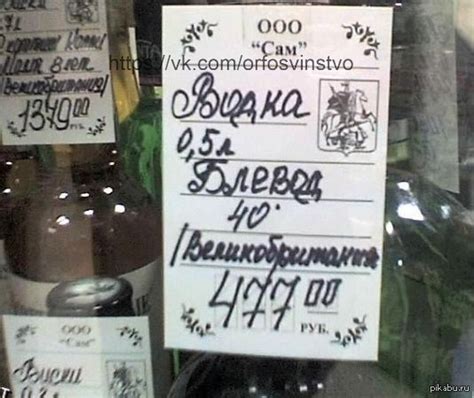 Великобритания/
1379 00
РУБ.
ООО
"Сам"
https://vk.com/orfosvinstvo
Водка
0,5л
Блевод
40°
/Великобритания
477 00
РУБ.
ООО
"Сам"
Виски
pikabu.ru